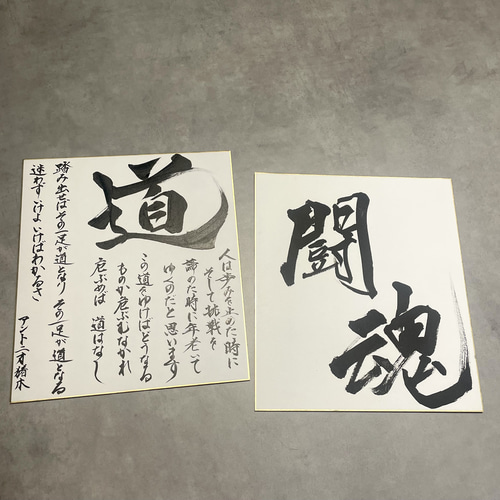 道
人は歩みを止めた時に
そして挑戦を
諦めた時に年老いて
ゆくのだと思います
この道をゆけばどうなる
ものか危ぶむなかれ
危ぶめば 道はなし
踏み出せばその一足が道となり その一足が道となる
迷わずゆけよ いけばわかるさ
アントニオ猪木
闘
魂